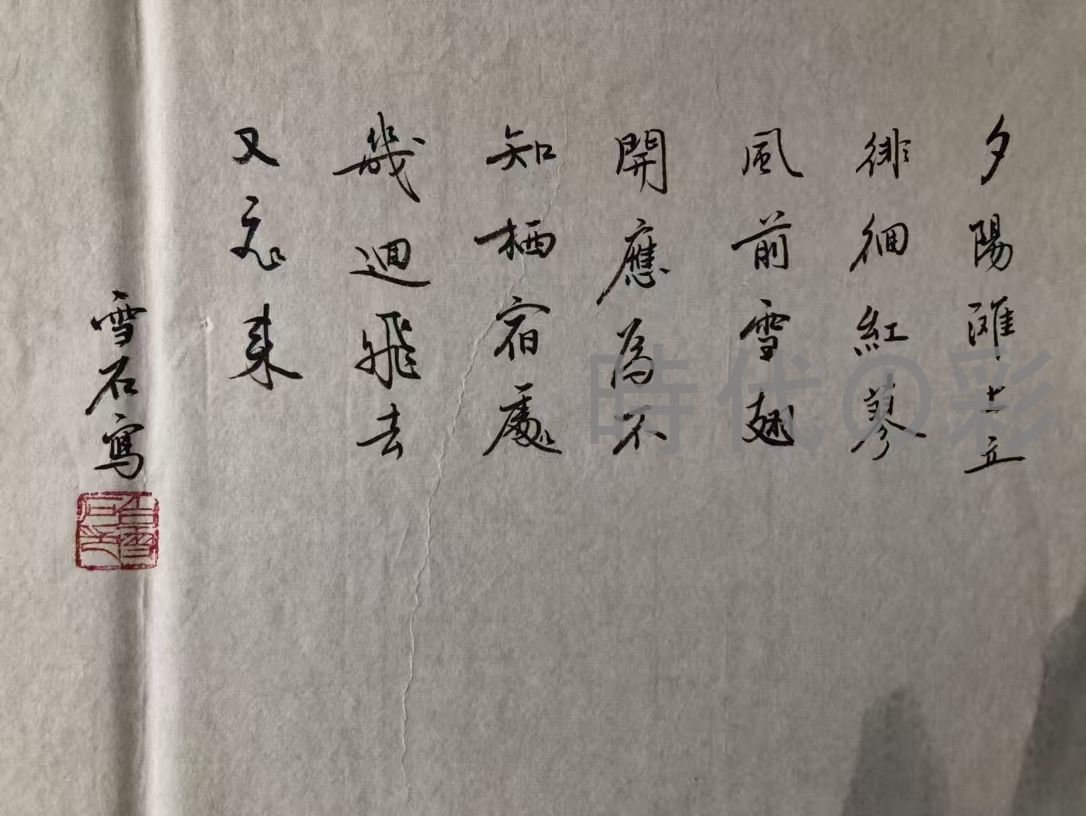 夕陽灘上立
徘徊紅蓼
風前雪翅
開應為不
知栖宿處
幾迴飛去
又飛來
雪石寫
時代@彩